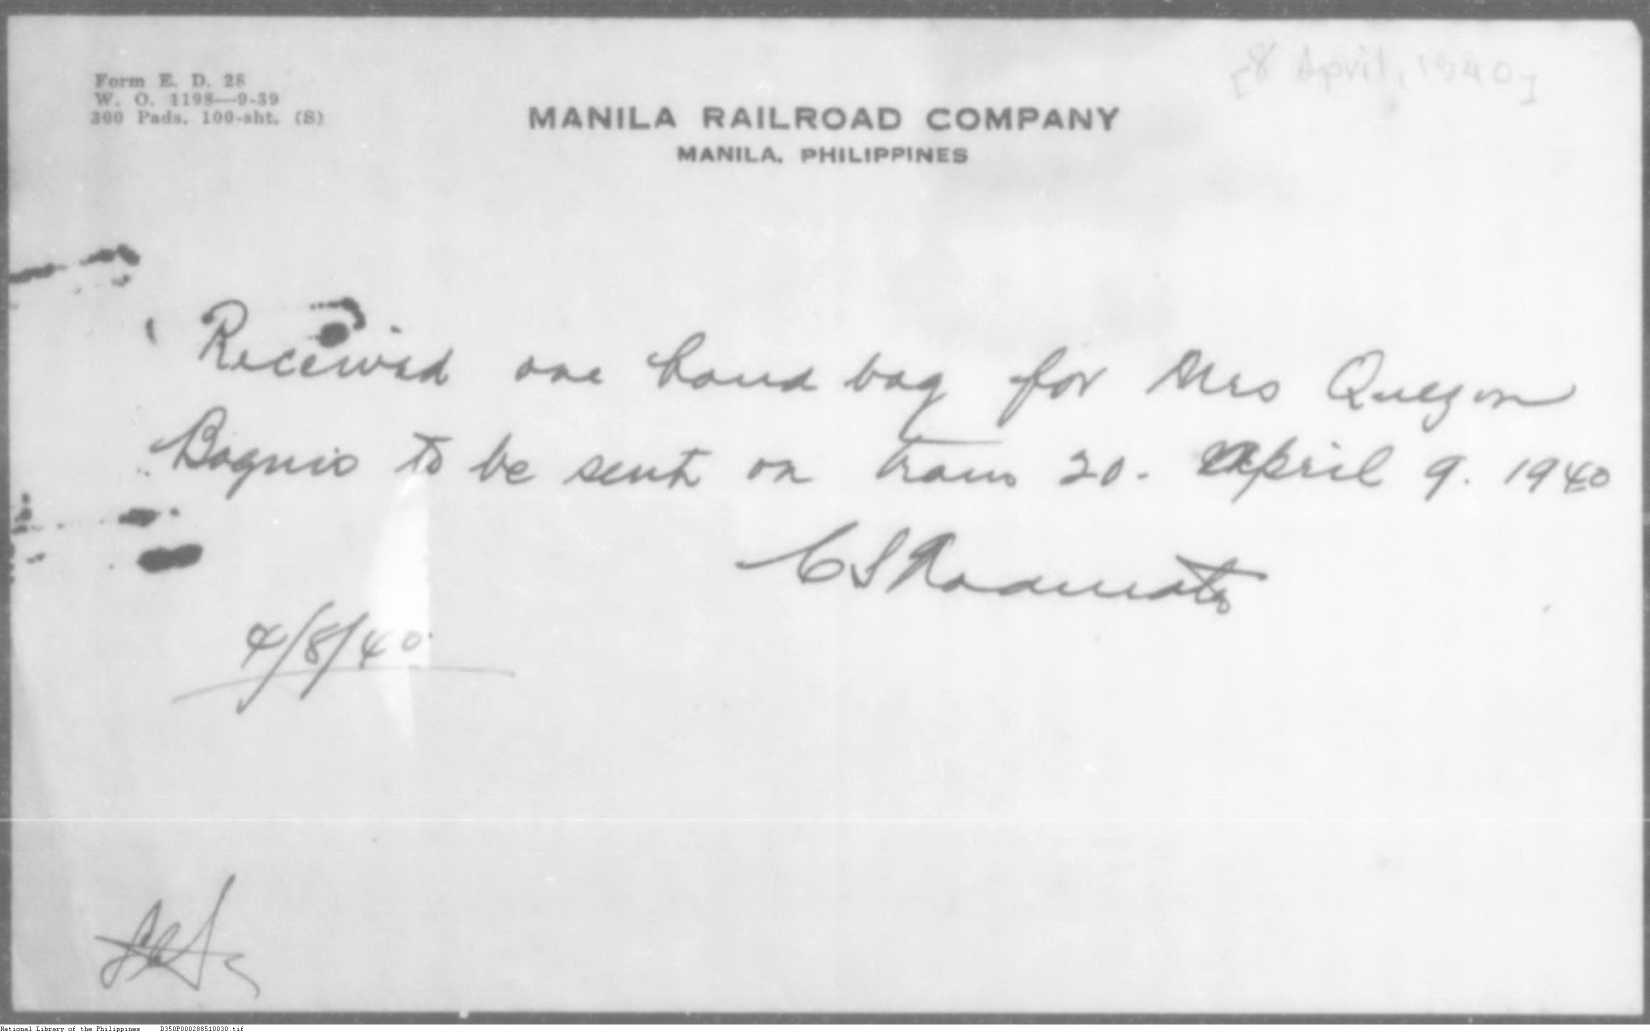 Form E. D. 28
W. O. 1198—9-39
300 Pads. 100-sht. (S)
[8 April, 1940]
MANILA RAILROAD COMPANY
MANILA, PHILIPPINES
Received one hand bag for Mrs Quezon
Baguio to be sent on train 20. April 9. 1940
4/8/40
National Library of the Philippines D350P000288510030.tif